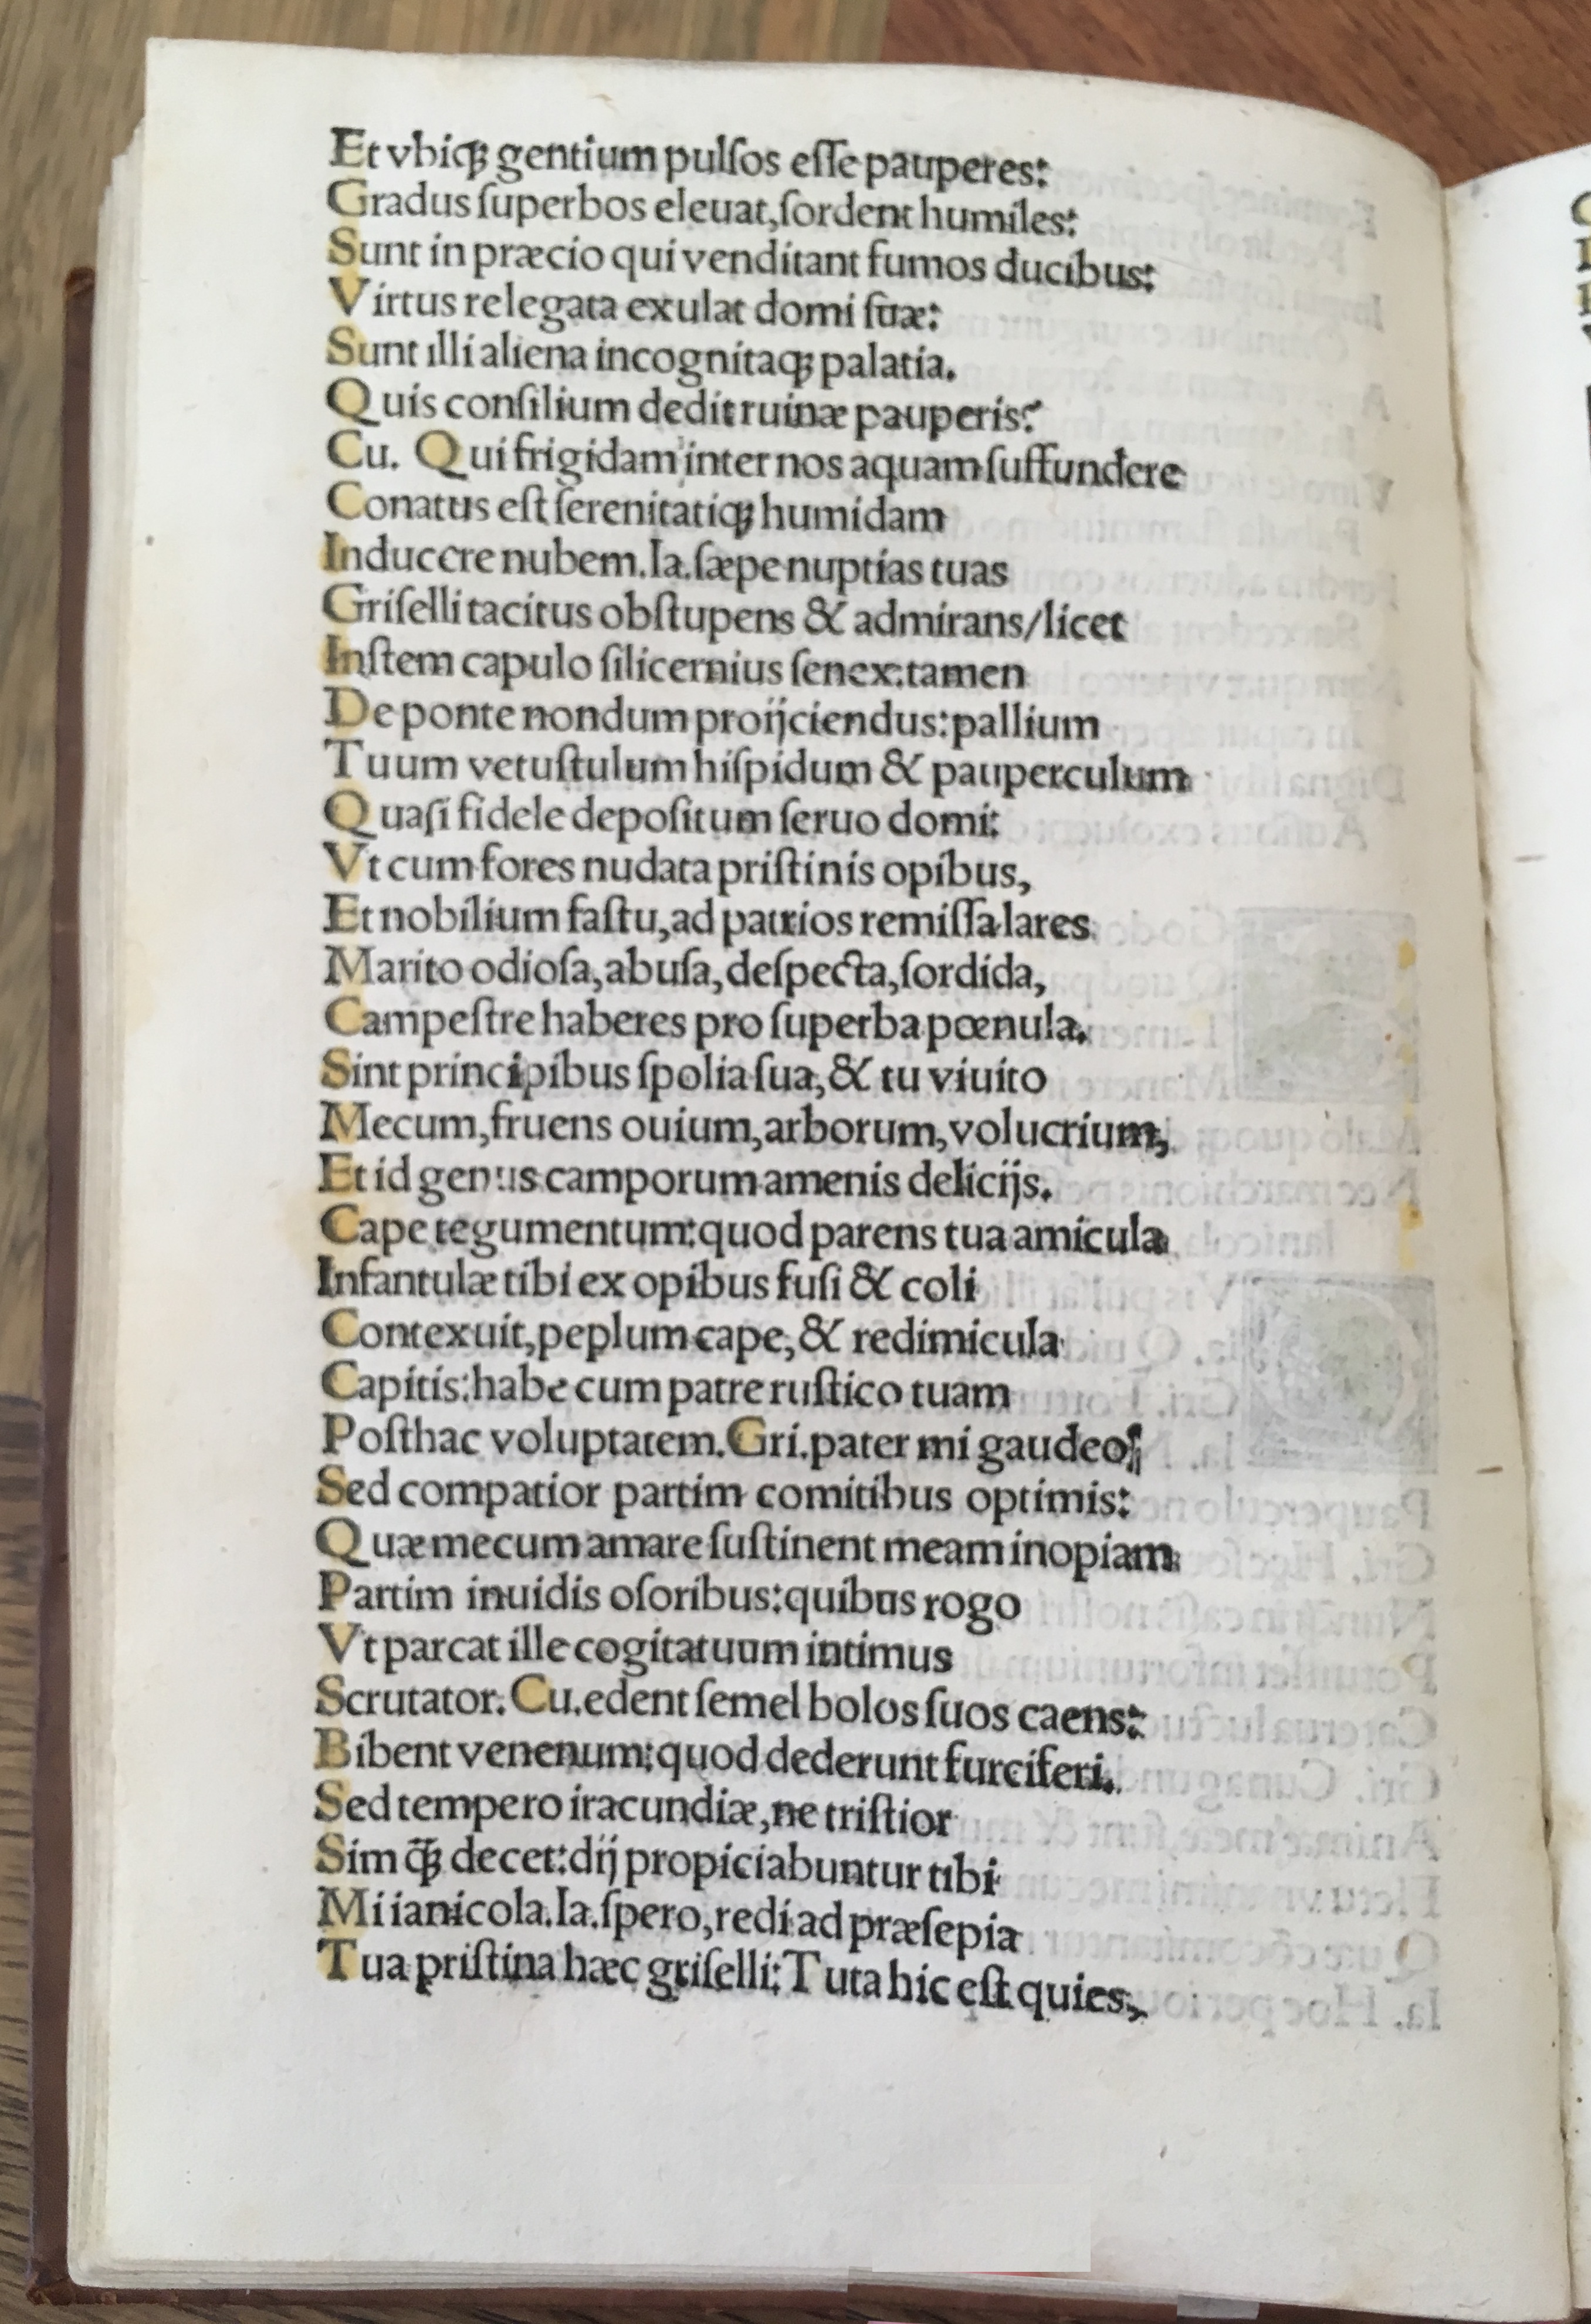 Et vbiqꝫ gentium pulſos eſſe pauperes:
Gradus ſuperbos eleuat,ſordent humiles:
Sunt in præcio qui venditant fumos ducibus:
Virtus relegata exulat domi ſuæ:
Sunt illi aliena incognitaqꝫ palatia.
Quis conſilium dedit ruinæ pauperis?
Cu. Qui frigidam inter nos aquam ſuffundere
Conatus eſt ſerenitatiqꝫ humidam
Inducere nubem.Ia.ſæpe nuptias tuas
Griſelli tacitus obſtupens & admirans/licet
Inſtem capulo ſilicernius ſenex:tamen
De ponte nondum proijciendus:pallium
Tuum vetuſtulum hiſpidum & pauperculum
Quaſi fidele depoſitum ſeruo domi:
Vt cum fores nudata priſtinis opibus,
Et nobilium faſtu,ad patrios remiſſa lares
Marito odioſa,abuſa,deſpecta,ſordida,
Campeſtre haberes pro ſuperba pœnula.
Sint principibus ſpolia ſua,& tu viuito
Mecum,fruens ouium,arborum,volucrium,
Et id genus camporum amenis delicijs.
Cape tegumentum:quod parens tua amicula
Infantulæ tibi ex opibus fuſi & coli
Contexuit,peplum cape,& redimicula
Capitis:habe cum patre ruſtico tuam
Poſthac voluptatem.Gri.pater mi gaudeo:
Sed compatior partim comitibus optimis:
Quæ mecum amare ſuſtinent meam inopiam
Partim inuidis oſoribus:quibus rogo
Vt parcat ille cogitatuum intimus
Scrutator.Cu.edent ſemel bolos ſuos caens:
Bibent venenum:quod dederunt furciferi.
Sed tempero iracundiæ,ne triſtior
Sim qꝫ̃ decet:dij propiciabuntur tibi
Mi ianicola.Ia.ſpero,redi ad præſepia
Tua priſtina hæc griſelli:Tuta hic eſt quies,